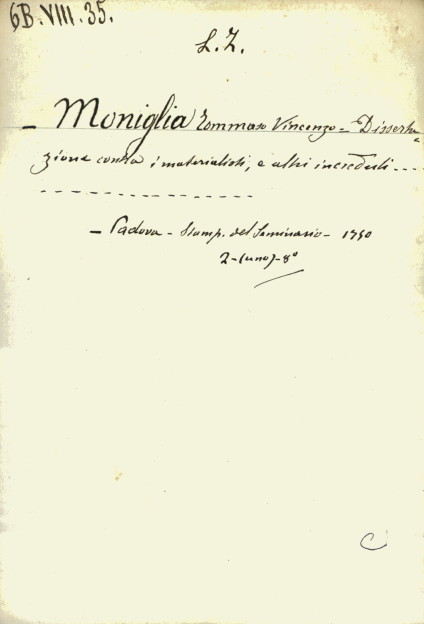 6B.VIII.35.
L.Z.
- Moniglia Tommaso Vincenzo = Disserta=
zione contro i materialisti, e altri increduli ....
- - - - - - - - - - - - - - - -
- Padova - Stamp. del Seminario - 1750
2 - (uno) - 8°
C